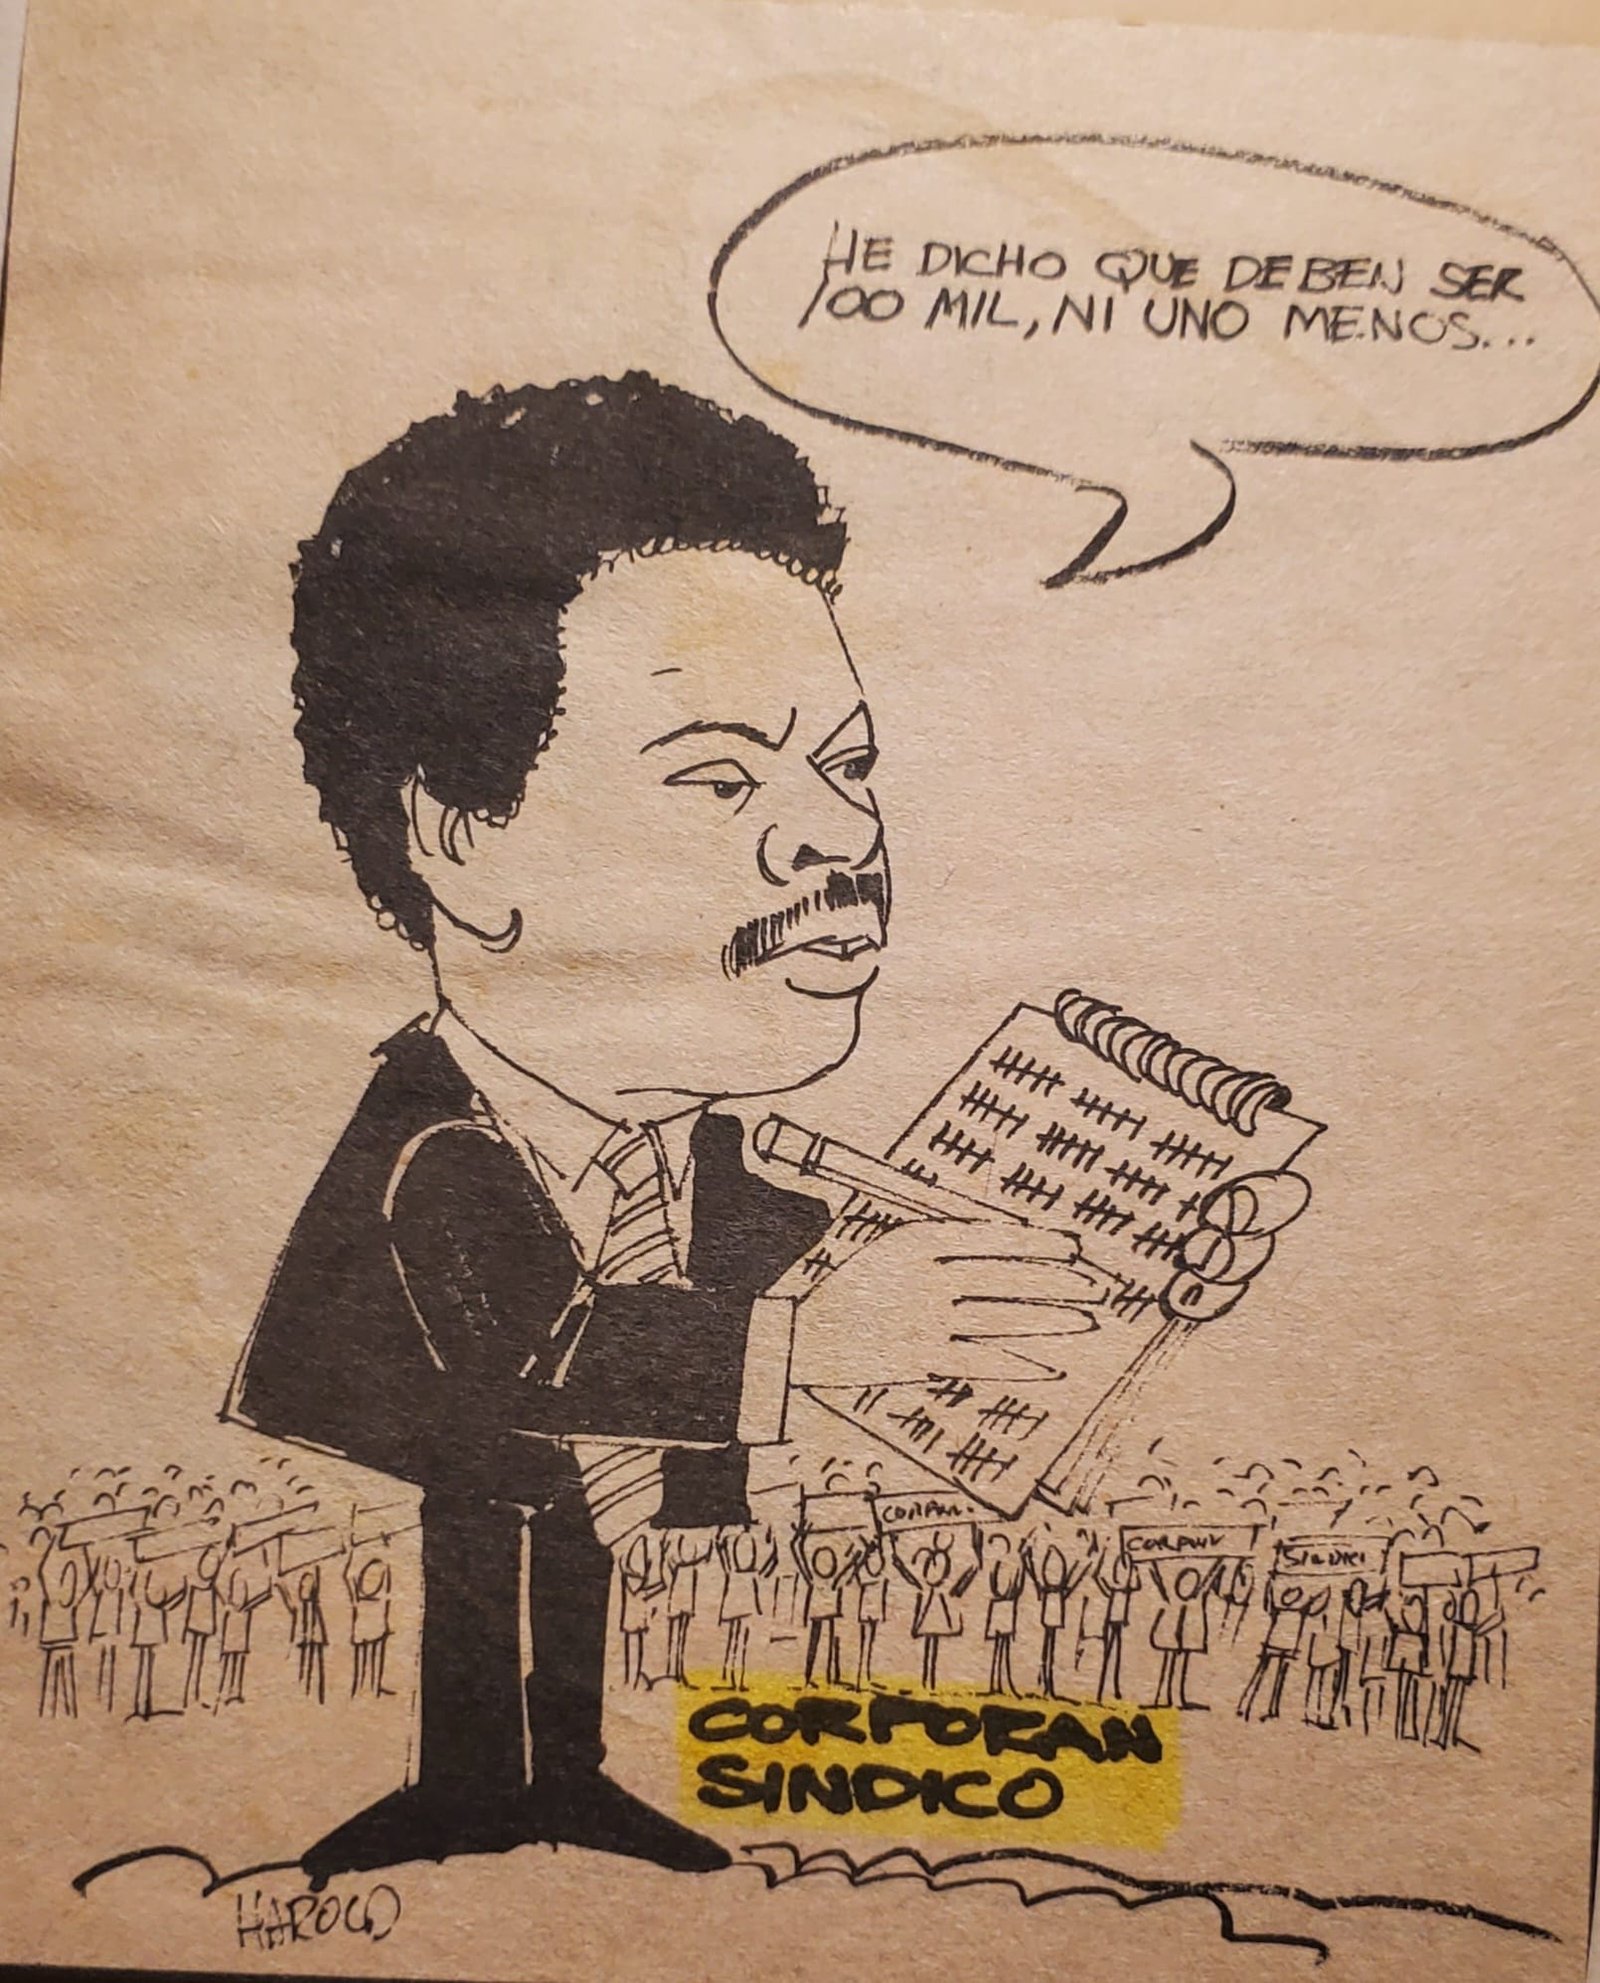 HE DICHO QUE DEBEN SER
100 MIL, NI UNO MENOS...
CORPORAN
SINDICO
HAROLD